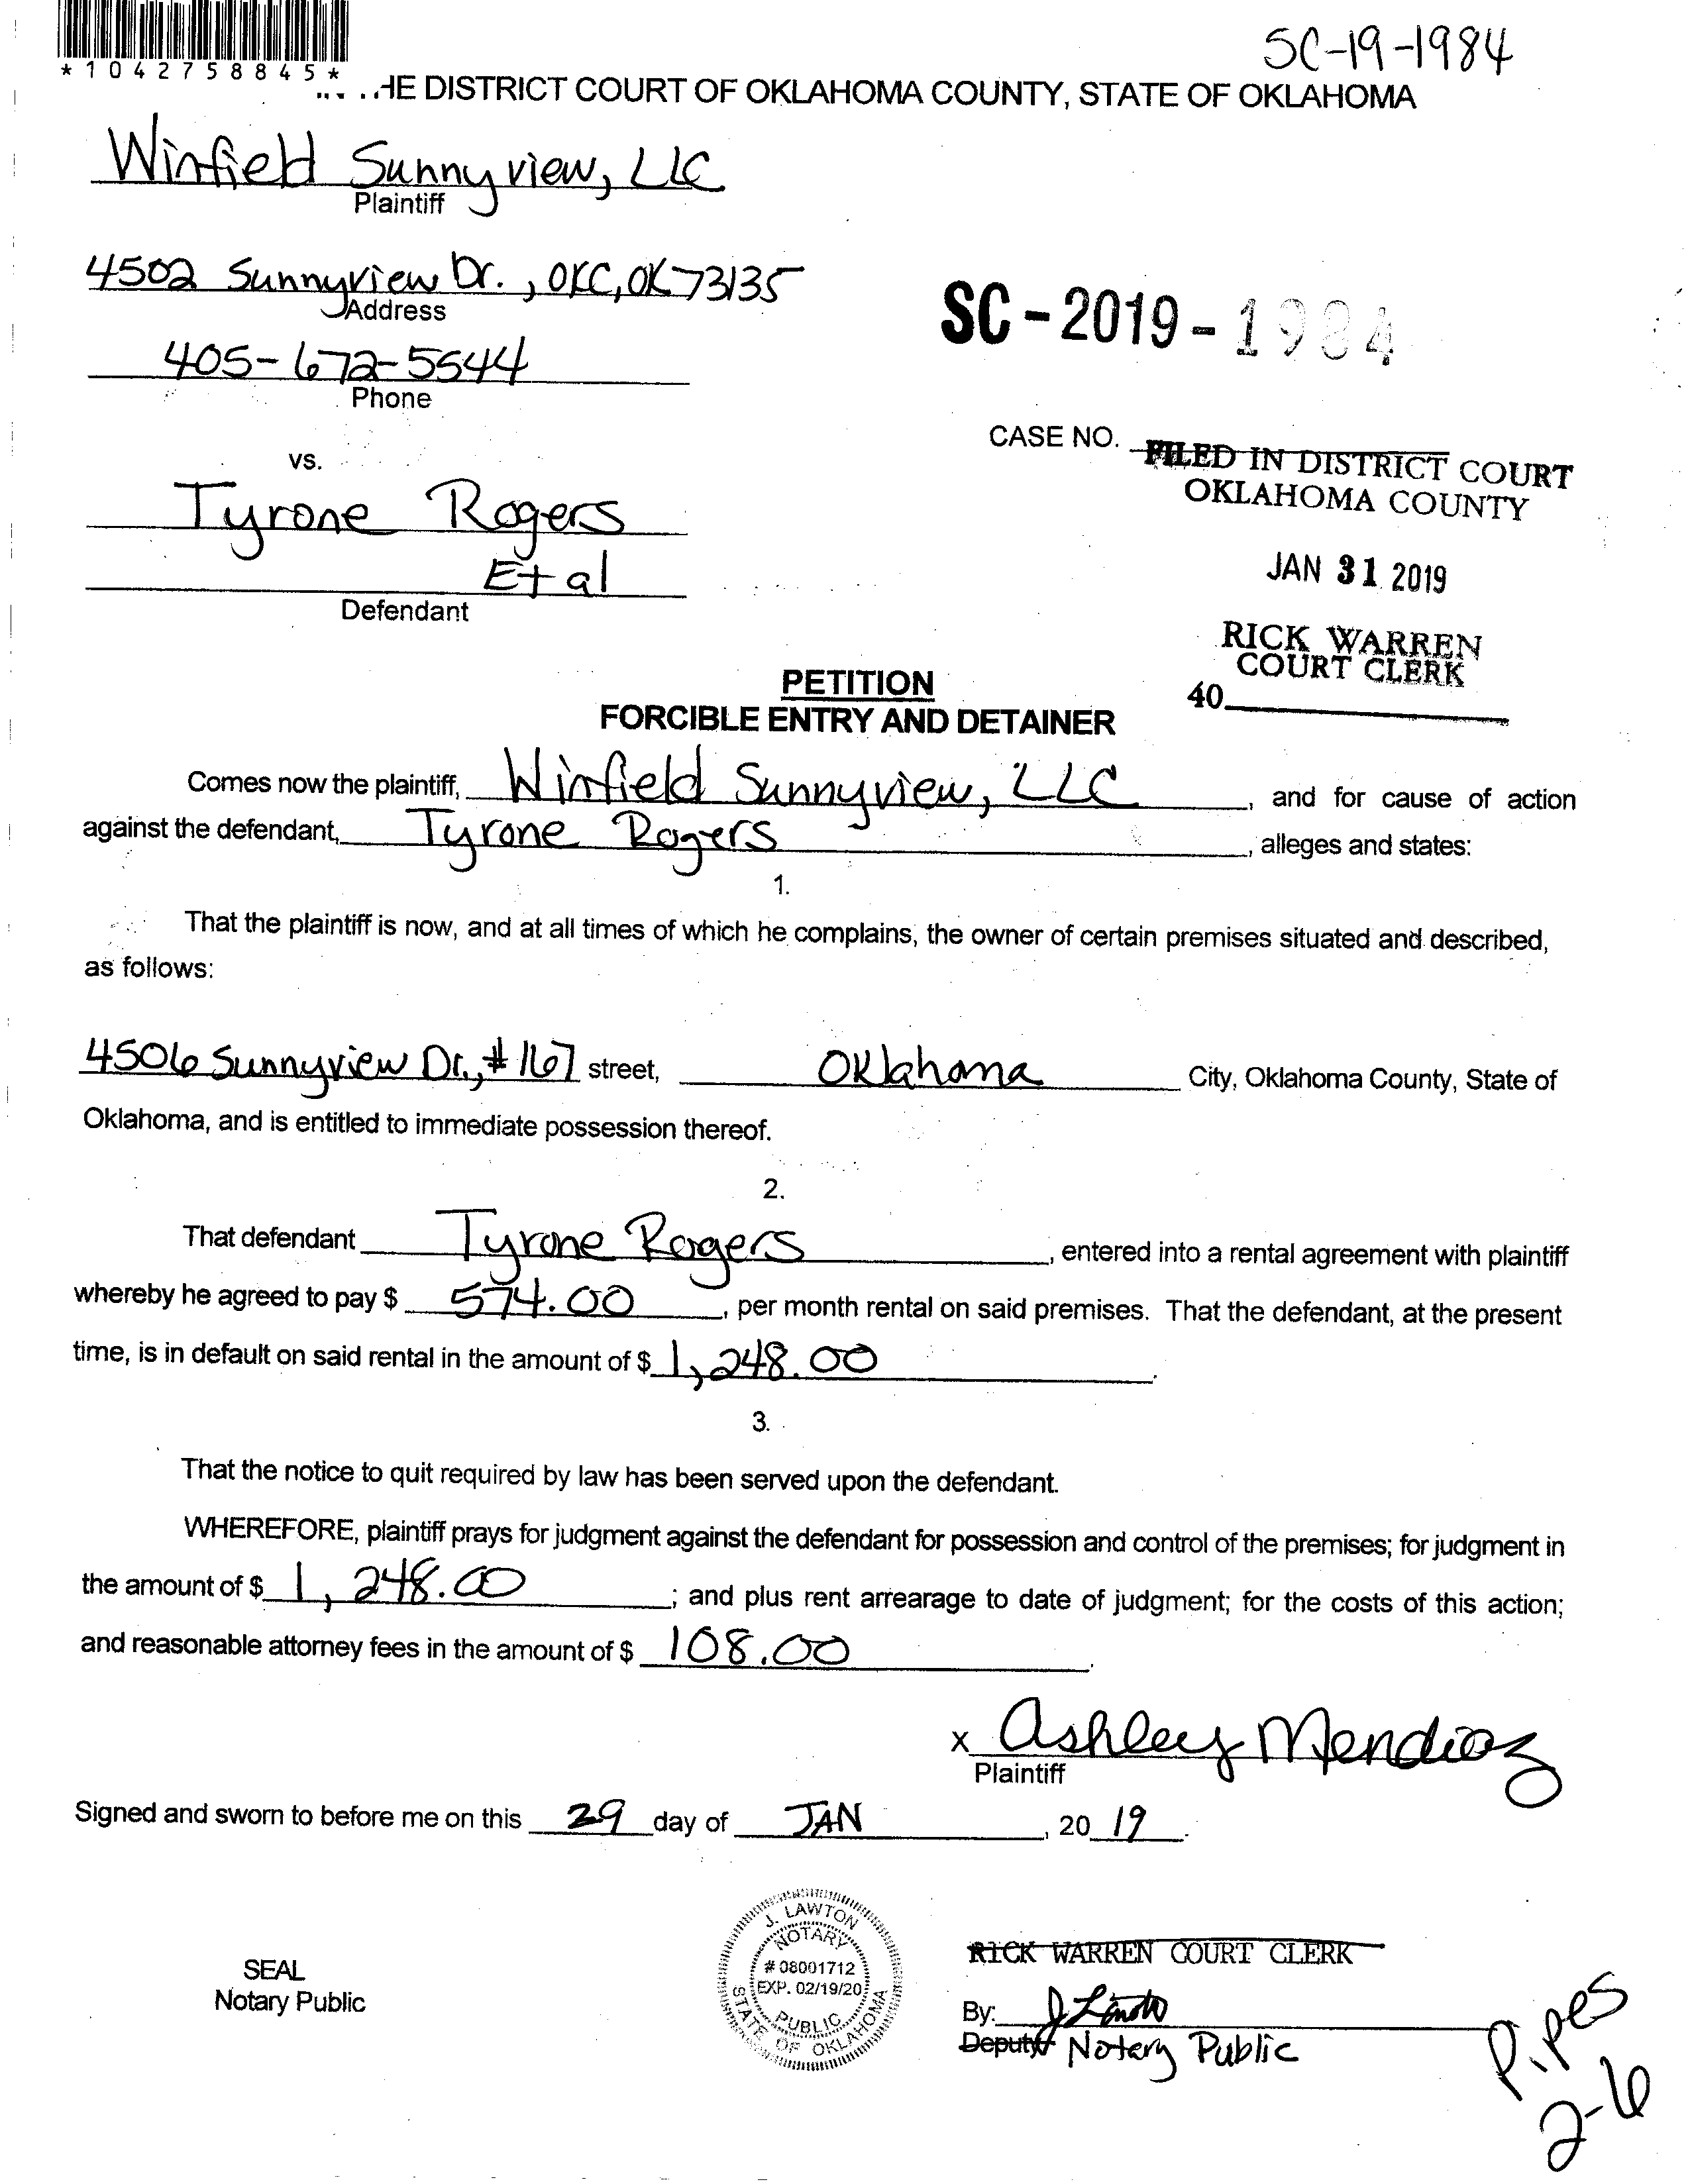 SC-19-1984
*1042758845*
HE DISTRICT COURT OF OKLAHOMA COUNTY, STATE OF OKLAHOMA
Winfield Sunnyview, LLC
Plaintiff
4502 Sunnyview Dr., OKC, OK 73135
Address
SC-2019-1984
405-672-5544
Phone
CASE NO.
FILED IN DISTRICT COURT
OKLAHOMA COUNTY
vs.
Tyrone Rogers
Et al
Defendant
JAN 31 2019
RICK WARREN
COURT CLERK
40
PETITION
FORCIBLE ENTRY AND DETAINER
Comes now the plaintiff, Winfield Sunnyview, LLC, and for cause of action
against the defendant, Tyrone Rogers, alleges and states:
1.
That the plaintiff is now, and at all times of which he complains, the owner of certain premises situated and described,
as follows:
4506 Sunnyview Dr., #167 street, Oklahoma City, Oklahoma County, State of
Oklahoma, and is entitled to immediate possession thereof.
2.
That defendant Tyrone Rogers, entered into a rental agreement with plaintiff
whereby he agreed to pay $ 574.00, per month rental on said premises. That the defendant, at the present
time, is in default on said rental in the amount of $ 1,248.00.
3.
That the notice to quit required by law has been served upon the defendant.
WHEREFORE, plaintiff prays for judgment against the defendant for possession and control of the premises; for judgment in
the amount of $ 1,248.00; and plus rent arrearage to date of judgment; for the costs of this action;
and reasonable attorney fees in the amount of $ 108.00.
x Ashley Mendioz
Plaintiff
Signed and sworn to before me on this 29 day of JAN, 20 19.
SEAL
Notary Public
J. LAWTON
NOTARY
# 08001712
EXP. 02/19/20
PUBLIC
STATE OF OKLAHOMA
RICK WARREN COURT CLERK
By:
Deputy Notary Public
Pipes
2-6